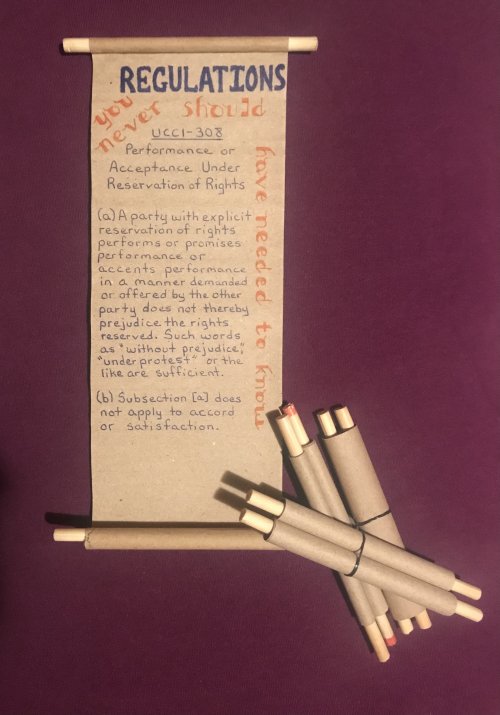 REGULATIONS
you never should have needed to know
UCC1-308
Performance or
Acceptance Under
Reservation of Rights
(a) A party with explicit
reservation of rights
performs or promises
performance or
accents performance
in a manner demanded
or offered by the other
party does not thereby
prejudice the rights
reserved. Such words
as "without prejudice,"
"under protest" or the
like are sufficient.
(b) Subsection [a] does
not apply to accord
or satisfaction.